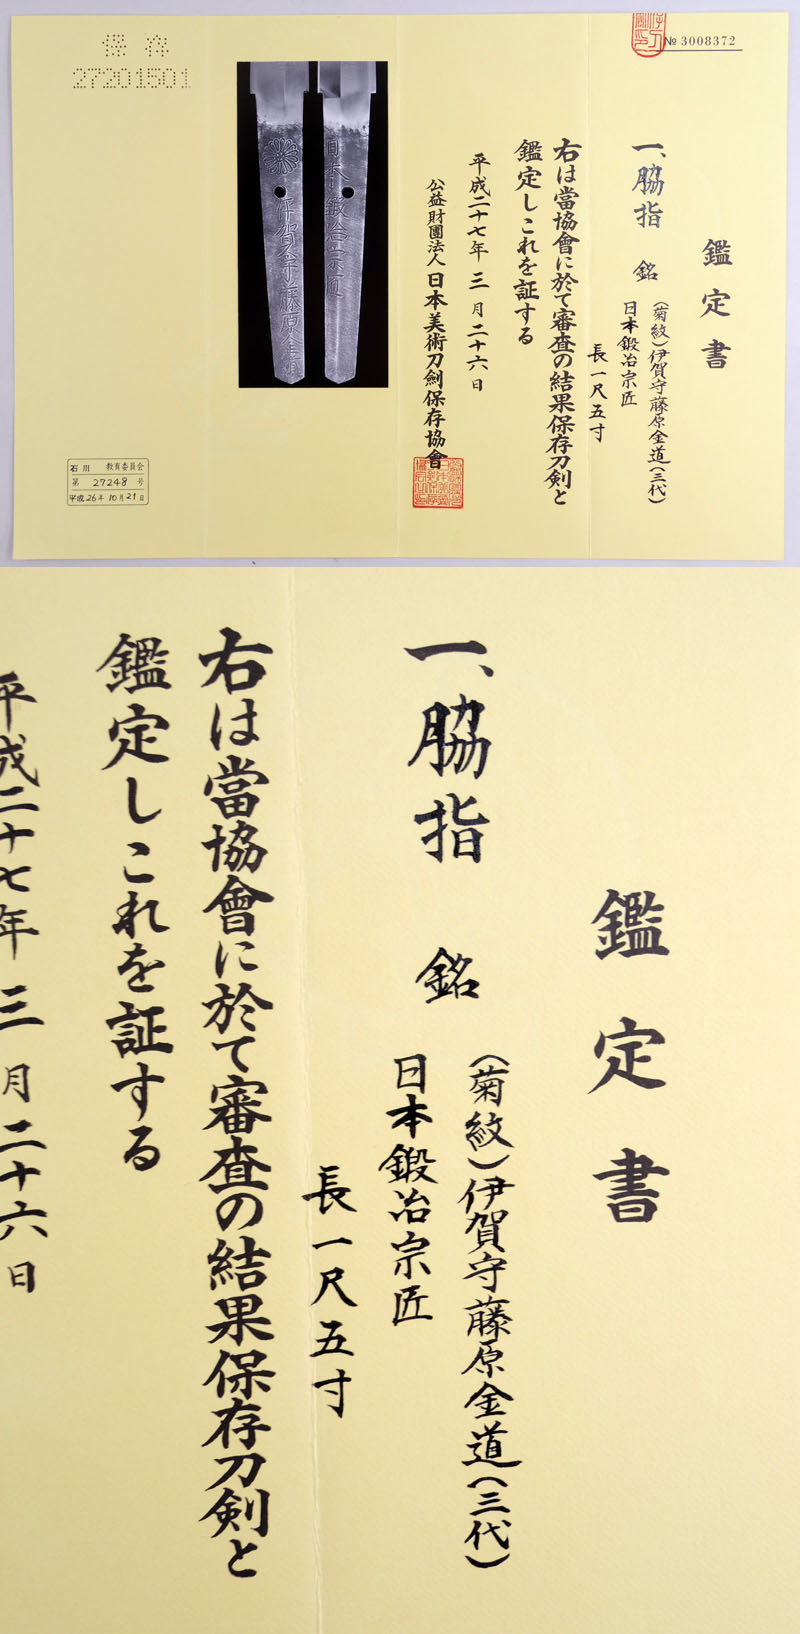 保存
27201501
№ 3008372
鑑定書
一、脇指 銘
(菊紋)伊賀守藤原金道(三代)
日本鍛冶宗匠
長一尺五寸
右は當協會に於て審査の結果保存刀剣と
鑑定しこれを証する
平成二十七年三月二十六日
公益財團法人日本美術刀劍保存協會
伊賀守藤原金道
日本鍛冶宗匠
石川 教育委員会
第 27248 号
平成26年10月21日
鑑定書
一、脇指 銘
(菊紋)伊賀守藤原金道(三代)
日本鍛冶宗匠
長一尺五寸
右は當協會に於て審査の結果保存刀剣と
鑑定しこれを証する
平成二十七年三月二十六日